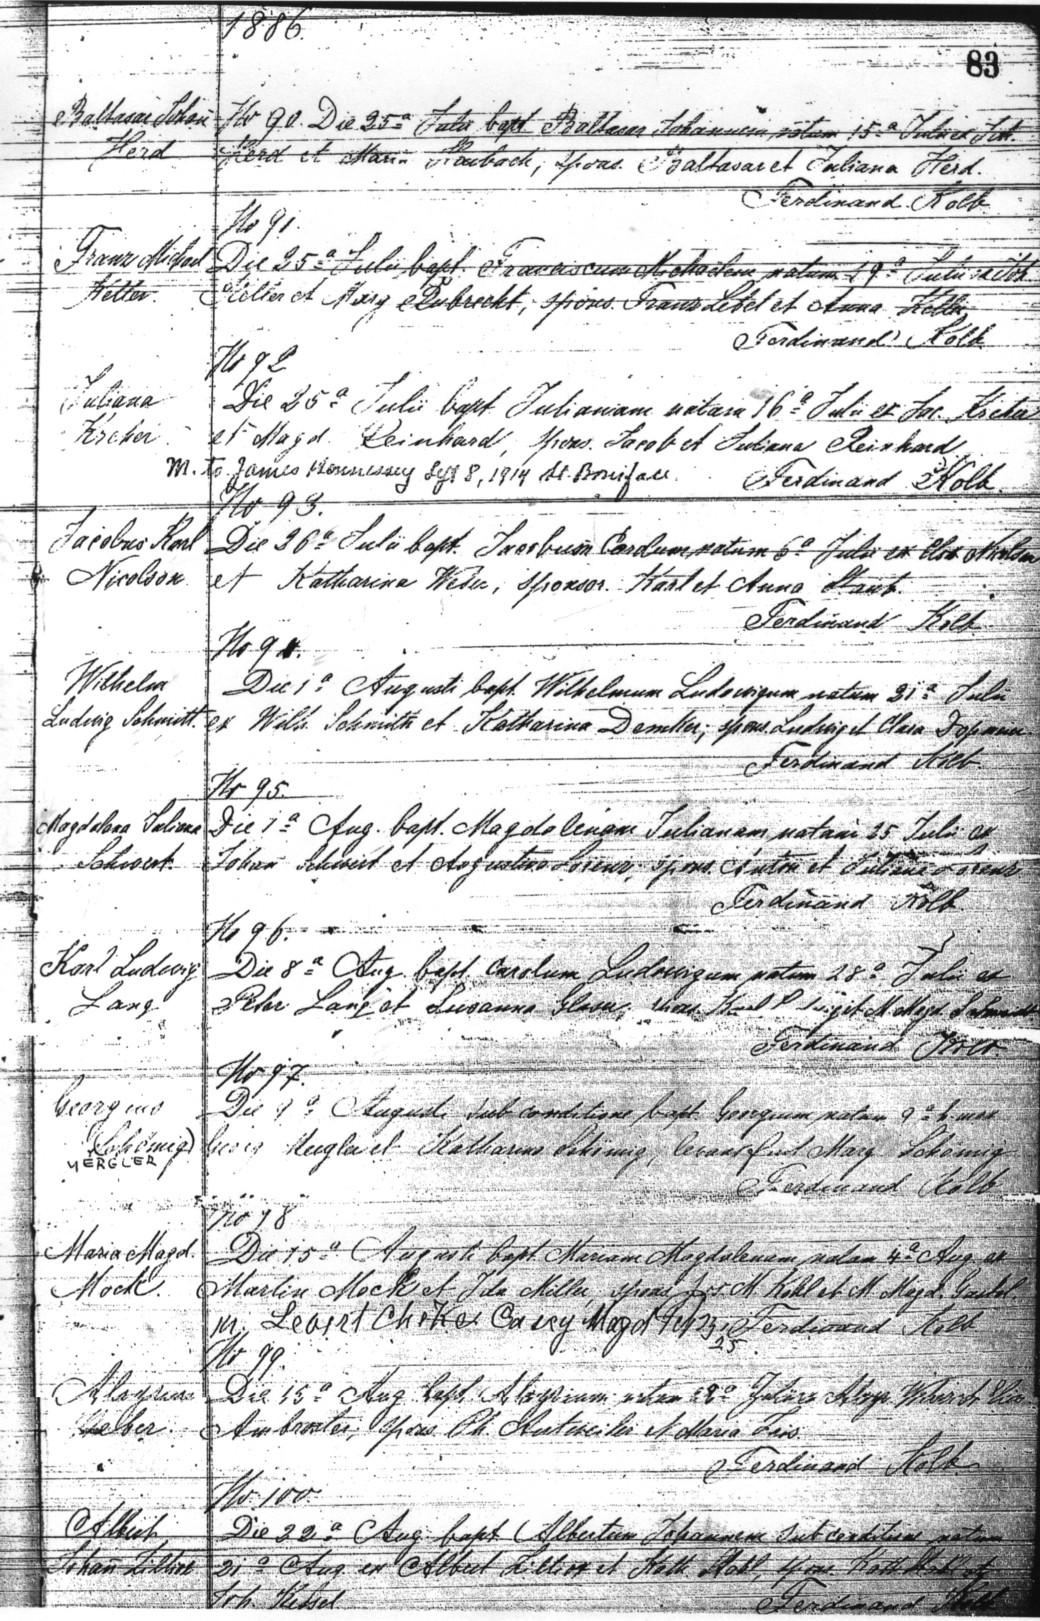 1886
83
Baltasar Johan Herd
No 90. Die 25a Julii bapt. Baltasar Johannem, natum 15a Julii ex Joh.
Herd et Maria Raibach, spons. Baltasar et Juliana Herd.
Ferdinand Kolb
No 91.
Franz Michael Keller.
Die 25a Julii bapt. Franciscum Michaelem natum 19a Julii ex
Keller et Marg. Rubrecht, spons. Franz Lebel et Anna Keller
Ferdinand Kolb
No 92
Juliana Kreher
Die 25a Julii bapt Julianam natam 16a Julii ex Jac. Kreher
et Magd. Reinhard, spons. Jacob et Juliana Reinhard
M. to James Hennessey Sept 8, 1914 St. Boniface
Ferdinand Kolb.
No 93.
Jacobus Karl Nicolson
Die 26a Julii bapt. Jacobum Carolum, natum 6a Julii ex
et Katharina Weber, sponsor. Karl et Anna Staub.
Ferdinand Kolb
No 94.
Wilhelm Ludwig Schmitt.
Die 1a Augusti bapt. Wilhelmum Ludovigum natum 21a Julii
ex Wilh. Schmitt et Katharina Demller, spons. Ludwig et Clara
Ferdinand Kolb.
No 95.
Magdalena Juliana Schwert.
Die 1a Aug. bapt. Magdalenam Julianam, natam 25 Julii ex
Johan Schwert et Augustina Lorenz, spons. Anton et Juliana Lorenz
Ferdinand Kolb
No 96.
Karl Ludwig Lang
Die 8a Aug. bapt. Carolum Ludovigum natum 28a Julii ex
Peter Lang et Susanna Glaser, spons. Karl et M. Magd.
Ferdinand Kolb.
No 97.
Georgius (Schömig) MERGLER
Die 9a Augusti sub conditione bapt. Georgium natum 9a h. mex
Georg Mergler et Katharina Schömig, levans fuit Marg Schömig
Ferdinand Kolb
No 98
Maria Magd. Mock.
Die 15a Augusti bapt. Mariam Magdalenam natam 4a Aug. ex
Martin Mock et Ida Miller, spons. Jos. M. Kohl et M Magd.
m. Casey Magd
25
Ferdinand Kolb
No 99.
Aloysius Weber.
Die 15a Aug bapt. Aloysium natum 28a Julii ex Aloys Weber et
Ambroster, spons. Ph. et Maria
Ferdinand Kolb.
No. 100.
Albert Johan
Die 22a Aug. bapt. Albertum Johannem sub conditione natum
21a Aug. ex Albert et Kath. Kohl, spons. Kath. Kohl et
Joh. Kessel
Ferdinand Kolb